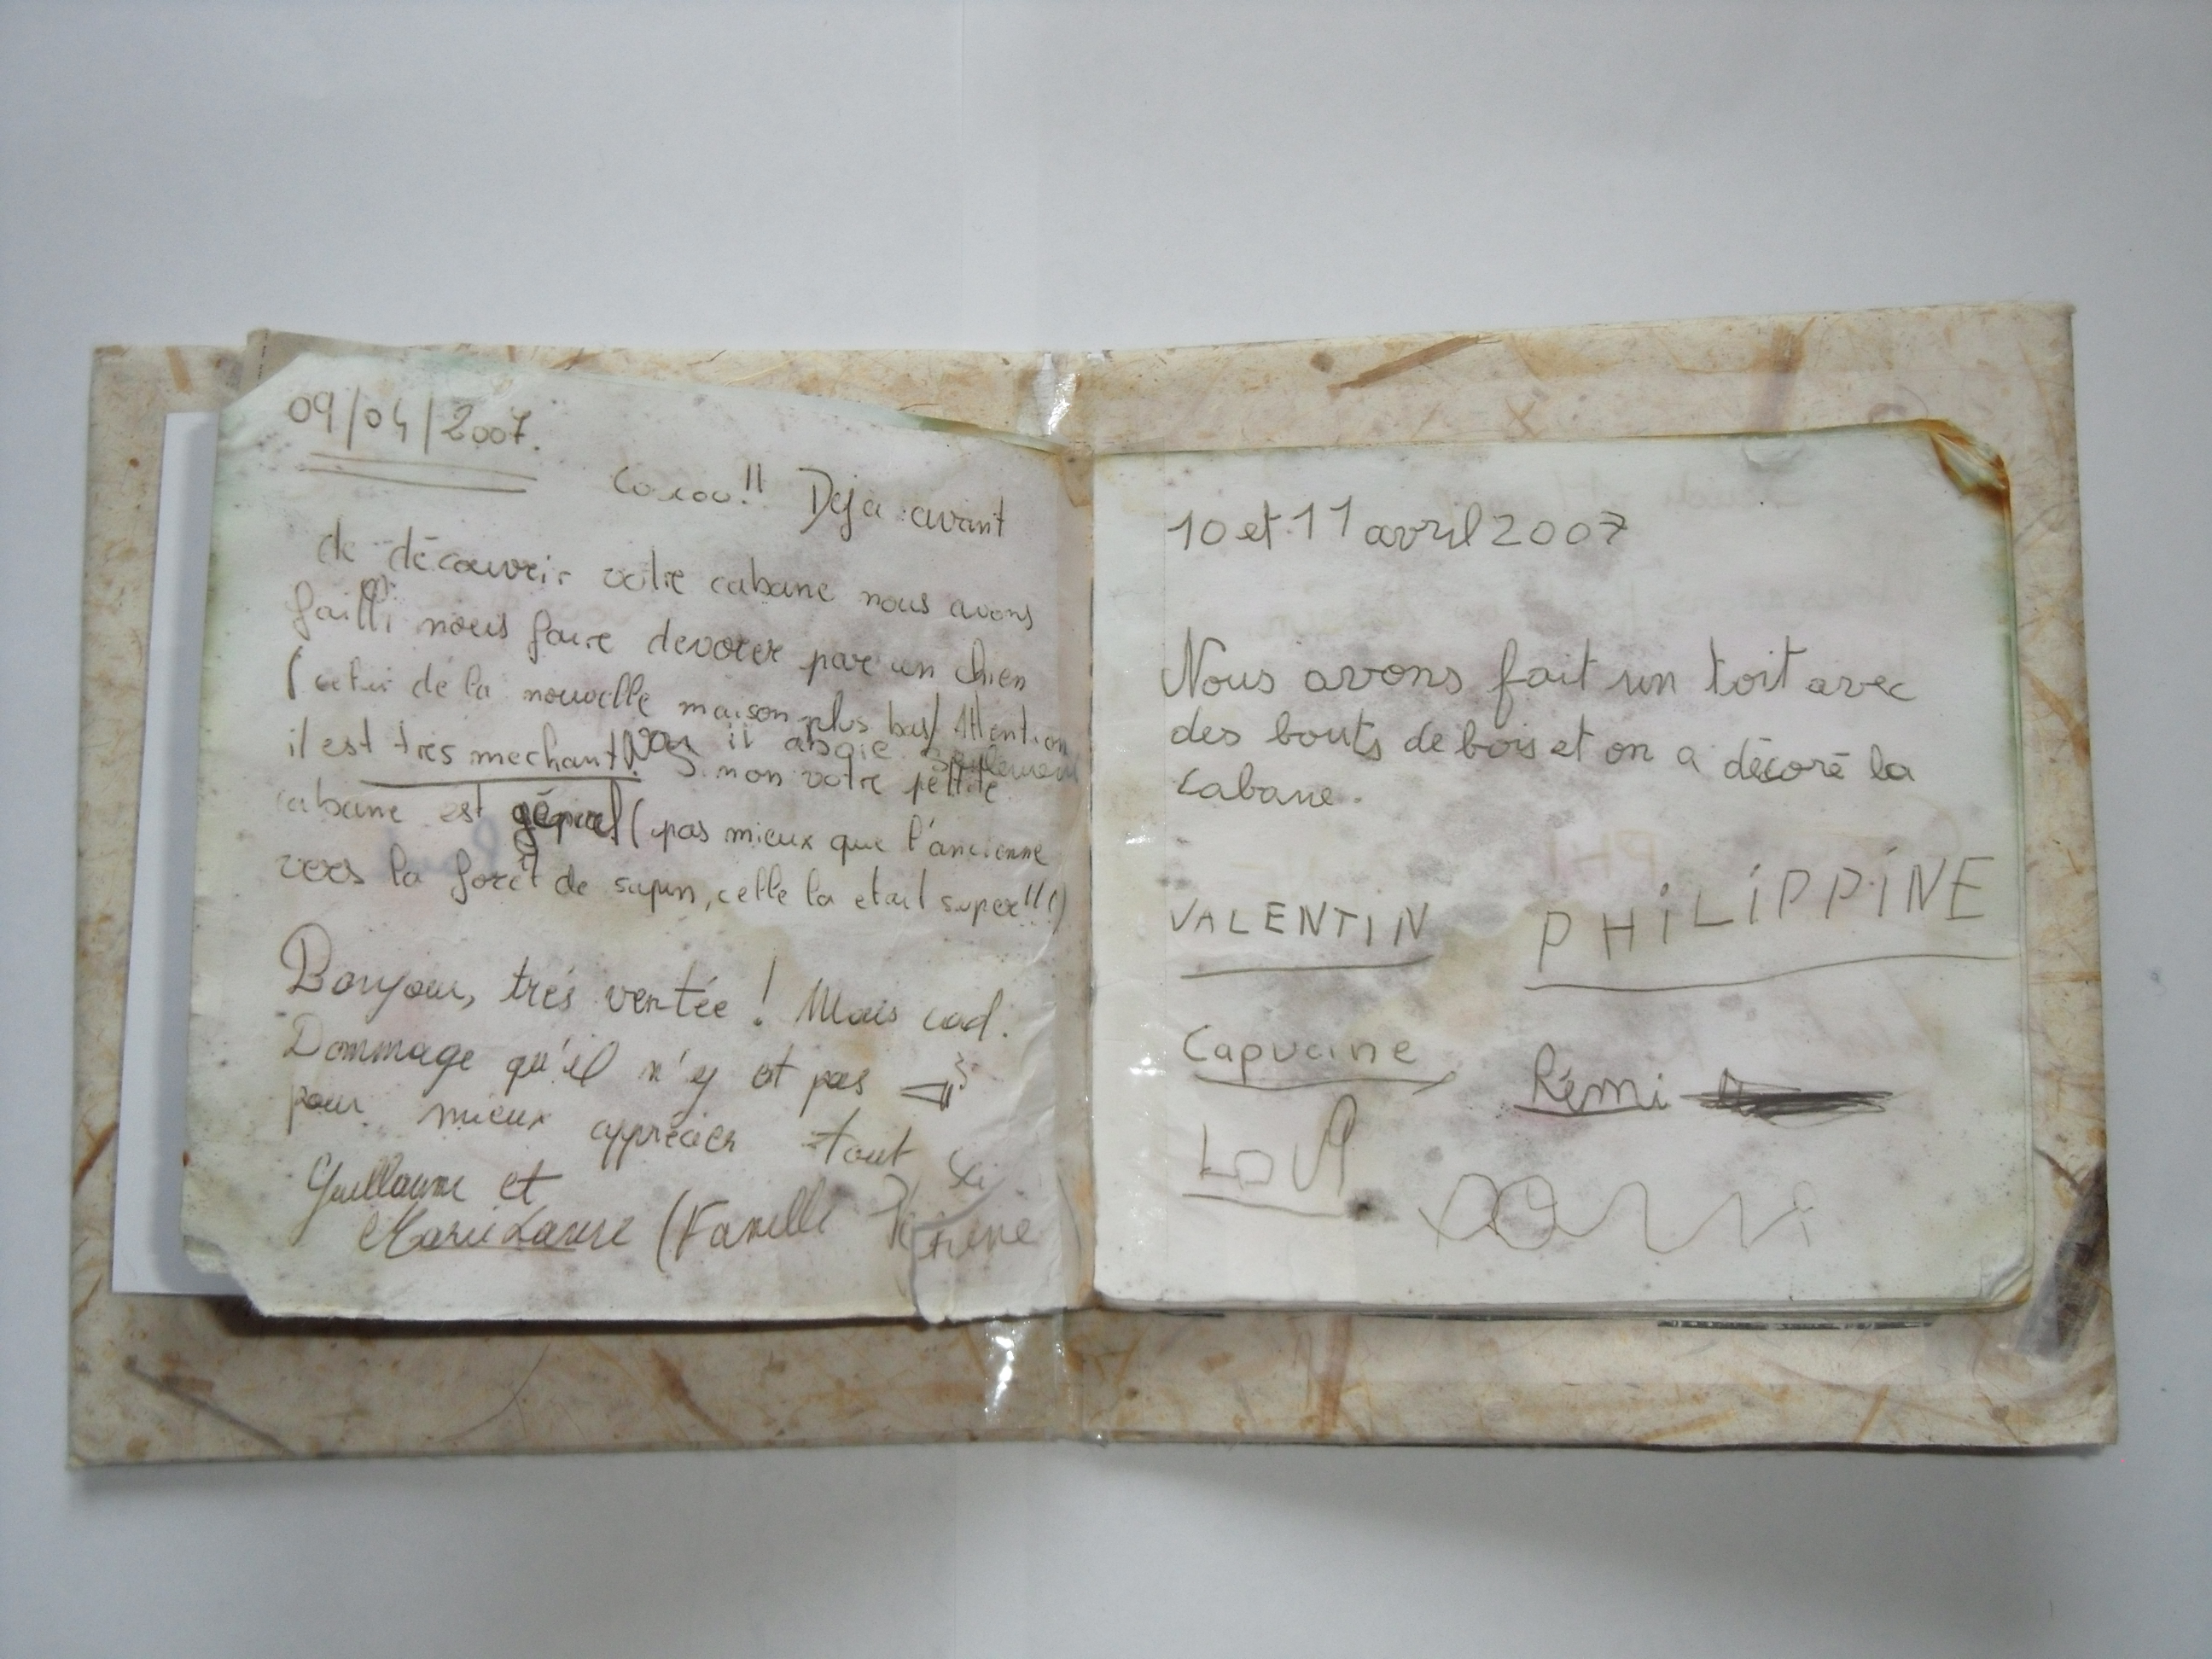 09/04/2007.
Coucou!! Deja avant
de découvrir votre cabane nous avons
failli nous faire devorer par un chien
(celui de la nouvelle maison plus bas) Attention
il est très mechant! Non il aboie seulement
Sinon votre petite
cabane est génial (pas mieux que l'ancienne
vers la forêt de sapin, celle la etait super!!!)
Bonjour, très ventée! Mais cool.
Dommage qu'il n'y est pas
pour mieux apprécier tout
Guillaume et
Marie Laure (Famille
10 et 11 avril 2007
Nous avons fait un toit avec
des bouts de bois et on a décoré la
cabane.
VALENTIN PHiLiPPiNE
Capucine Rémi
LOU